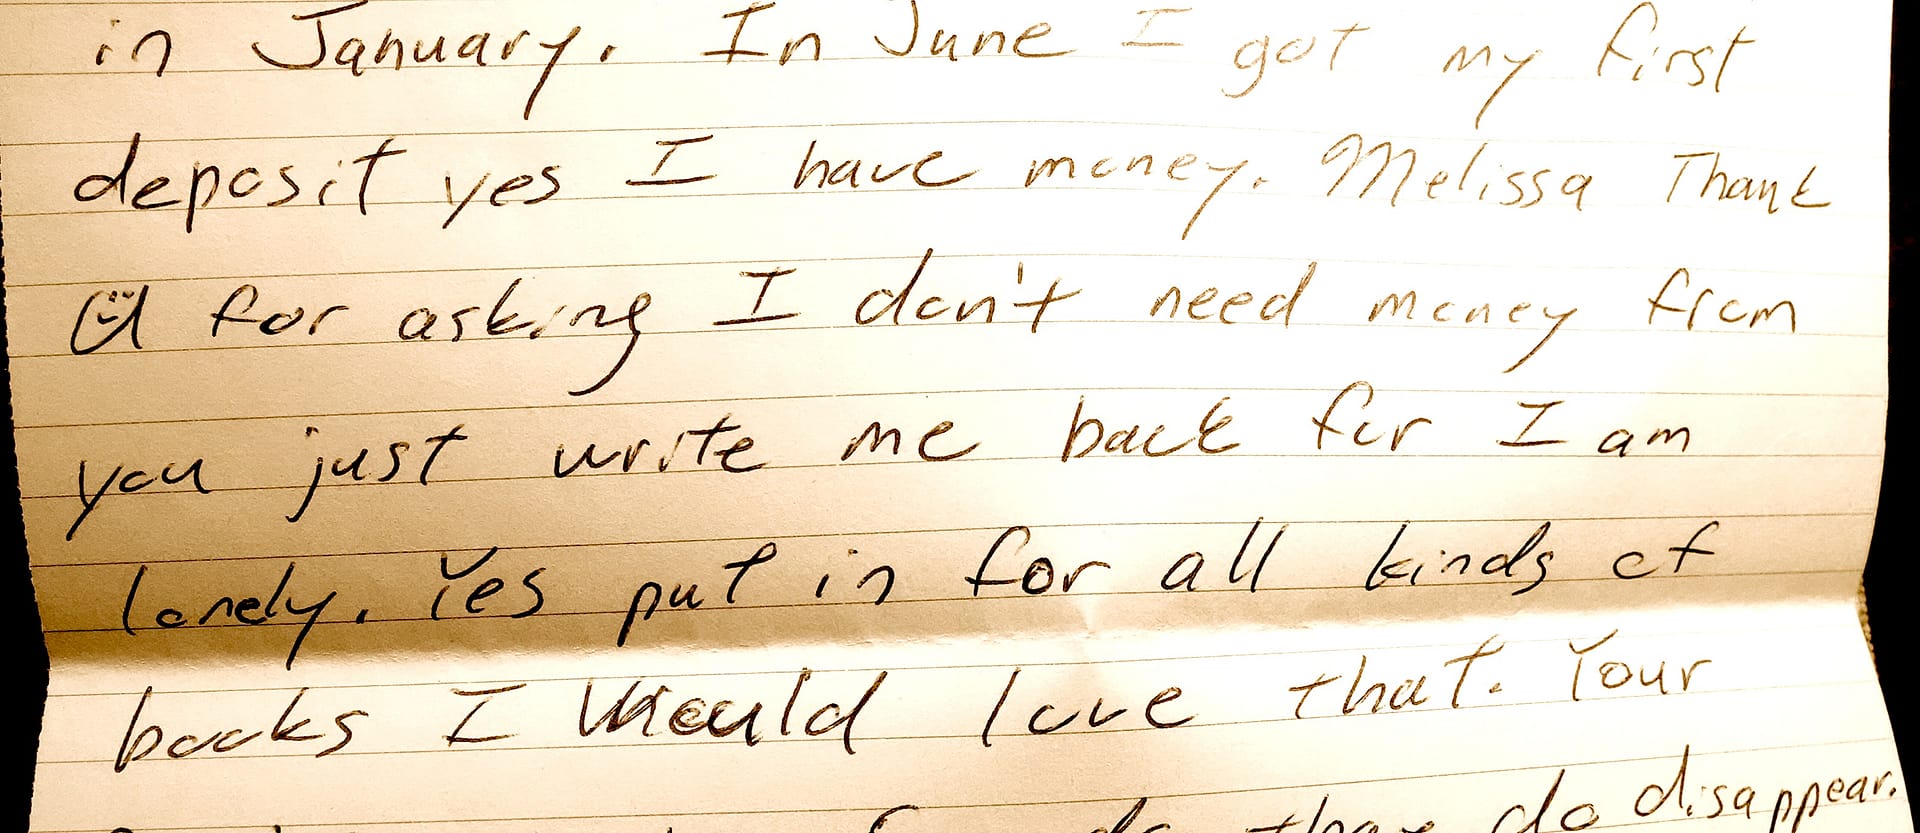 in January. In June I got my first
deposit yes I have money. Melissa Thank
U for asking I don't need money from
you just write me back for I am
lonely. Yes put in for all kinds of
books I would love that. Your
do disappear.